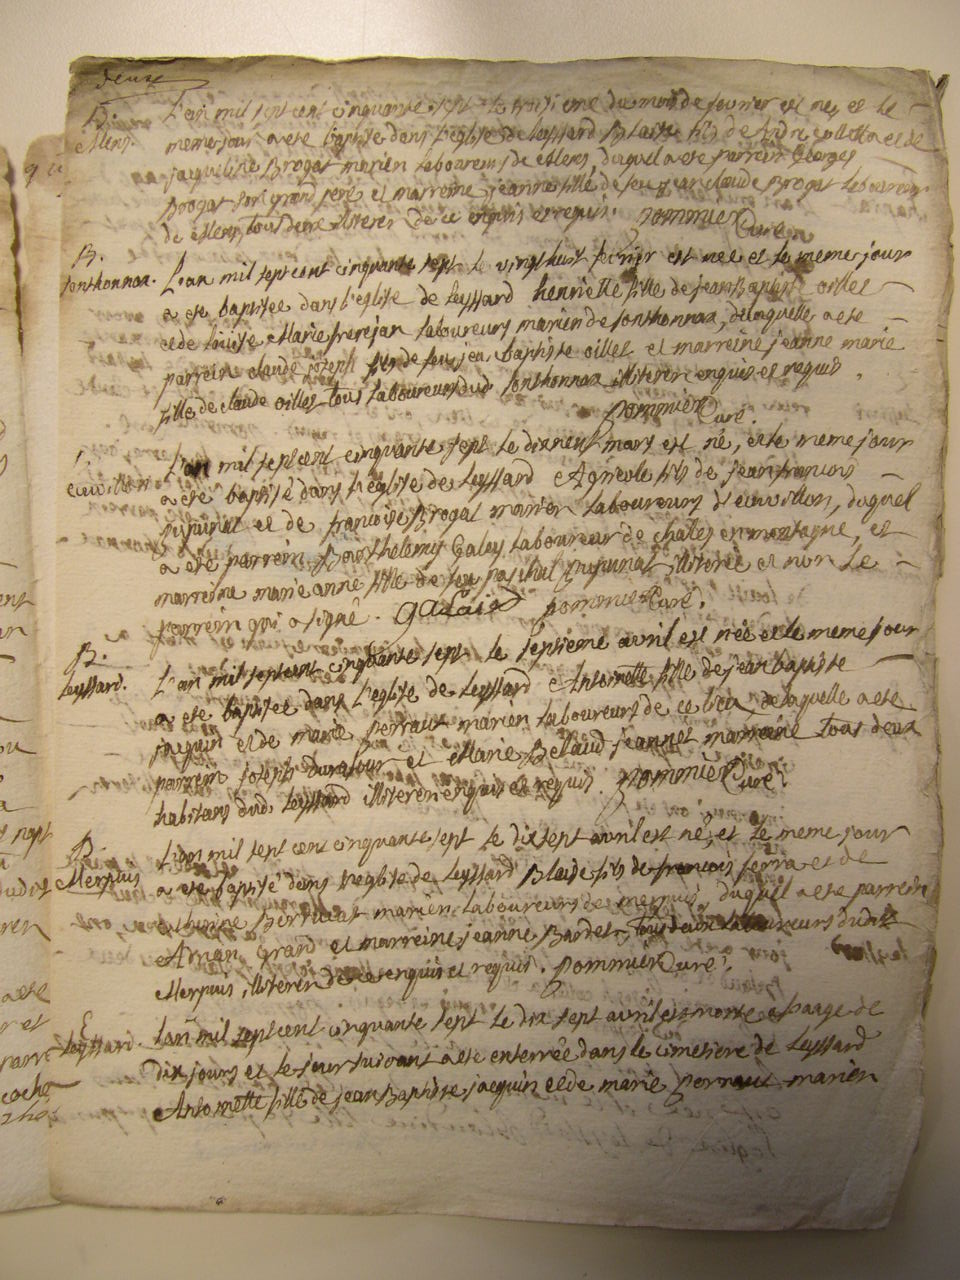 deuze
B.
L'an mil sept cent cinquante sept le troisieme du mois de fevrier est né, et le
meme jour a eté baptisé dans l'eglise de Leyssard Blaise fils de
jacqueline Brogat mariés laboureurs de duquel a eté parrein Georges
Brogat son grand pere et marreine jeanne fille de feu jean claude Brogat laboureurs
de tous deux illiterés de ce enquis et requis. Pommier Curé
B.
sonthonnax. L'an mil sept cent cinquante sept le vingt huit fevrier est née et le meme jour
a eté baptisée dans l'eglise de Leyssard henriette fille de jean Baptiste oillet
et de louise Marie frerejan laboureurs mariés de sonthonnax, de laquelle a eté
parrein claude joseph fils de feu jean baptiste oillet et marreine jeanne marie
fille de claude oillet tous laboureurs dud. sonthonnax illiterés enquis et requis.
Pommier Curé.
L'an mil sept cent cinquante sept le dixneuf mars est né, et le meme jour
a eté baptisé dans l'eglise de Leyssard Agricole fils de jean francois
et de francoise Brogat mariés laboureurs d'euvillon, duquel
a eté parrein Barthelemy Galey laboureur de chales en montagne, et
marreine marie anne fille de feu paschal illiterée et non le
parrein qui a signé. Pommier Curé.
B.
Leyssard. L'an mil sept cent cinquante sept le septieme avril est née et le meme jour
a eté baptisée dans l'eglise de Leyssard Antoinette fille de jean baptiste
jacquin et de marie perraut mariés laboureurs de ce lieu, de laquelle a eté
parrein joseph Durafour et Marie Belaud jeannet marreine tous deux
habitans dud. Leyssard illiterés enquis et requis. Pommier Curé.
B.
Merpuis
L'an mil sept cent cinquante sept le dix sept avril est né, et le meme jour
a eté baptisé dans l'eglise de Leyssard Blaise fils de francois ferra et de
mariés laboureurs de merpuis, duquel a eté parrein
grand et marreine jeanne Bardet tous deux laboureurs dudit
Merpuis, illiterés de ce enquis et requis. Pommier Curé.
Leyssard. L'an mil sept cent cinquante sept le dix sept avril est morte a l'aage de
Dix jours et le jour suivant a eté enterrée dans le cimetiere de Leyssard
Antoinette fille de jean Baptiste jacquin et de marie perraut mariés